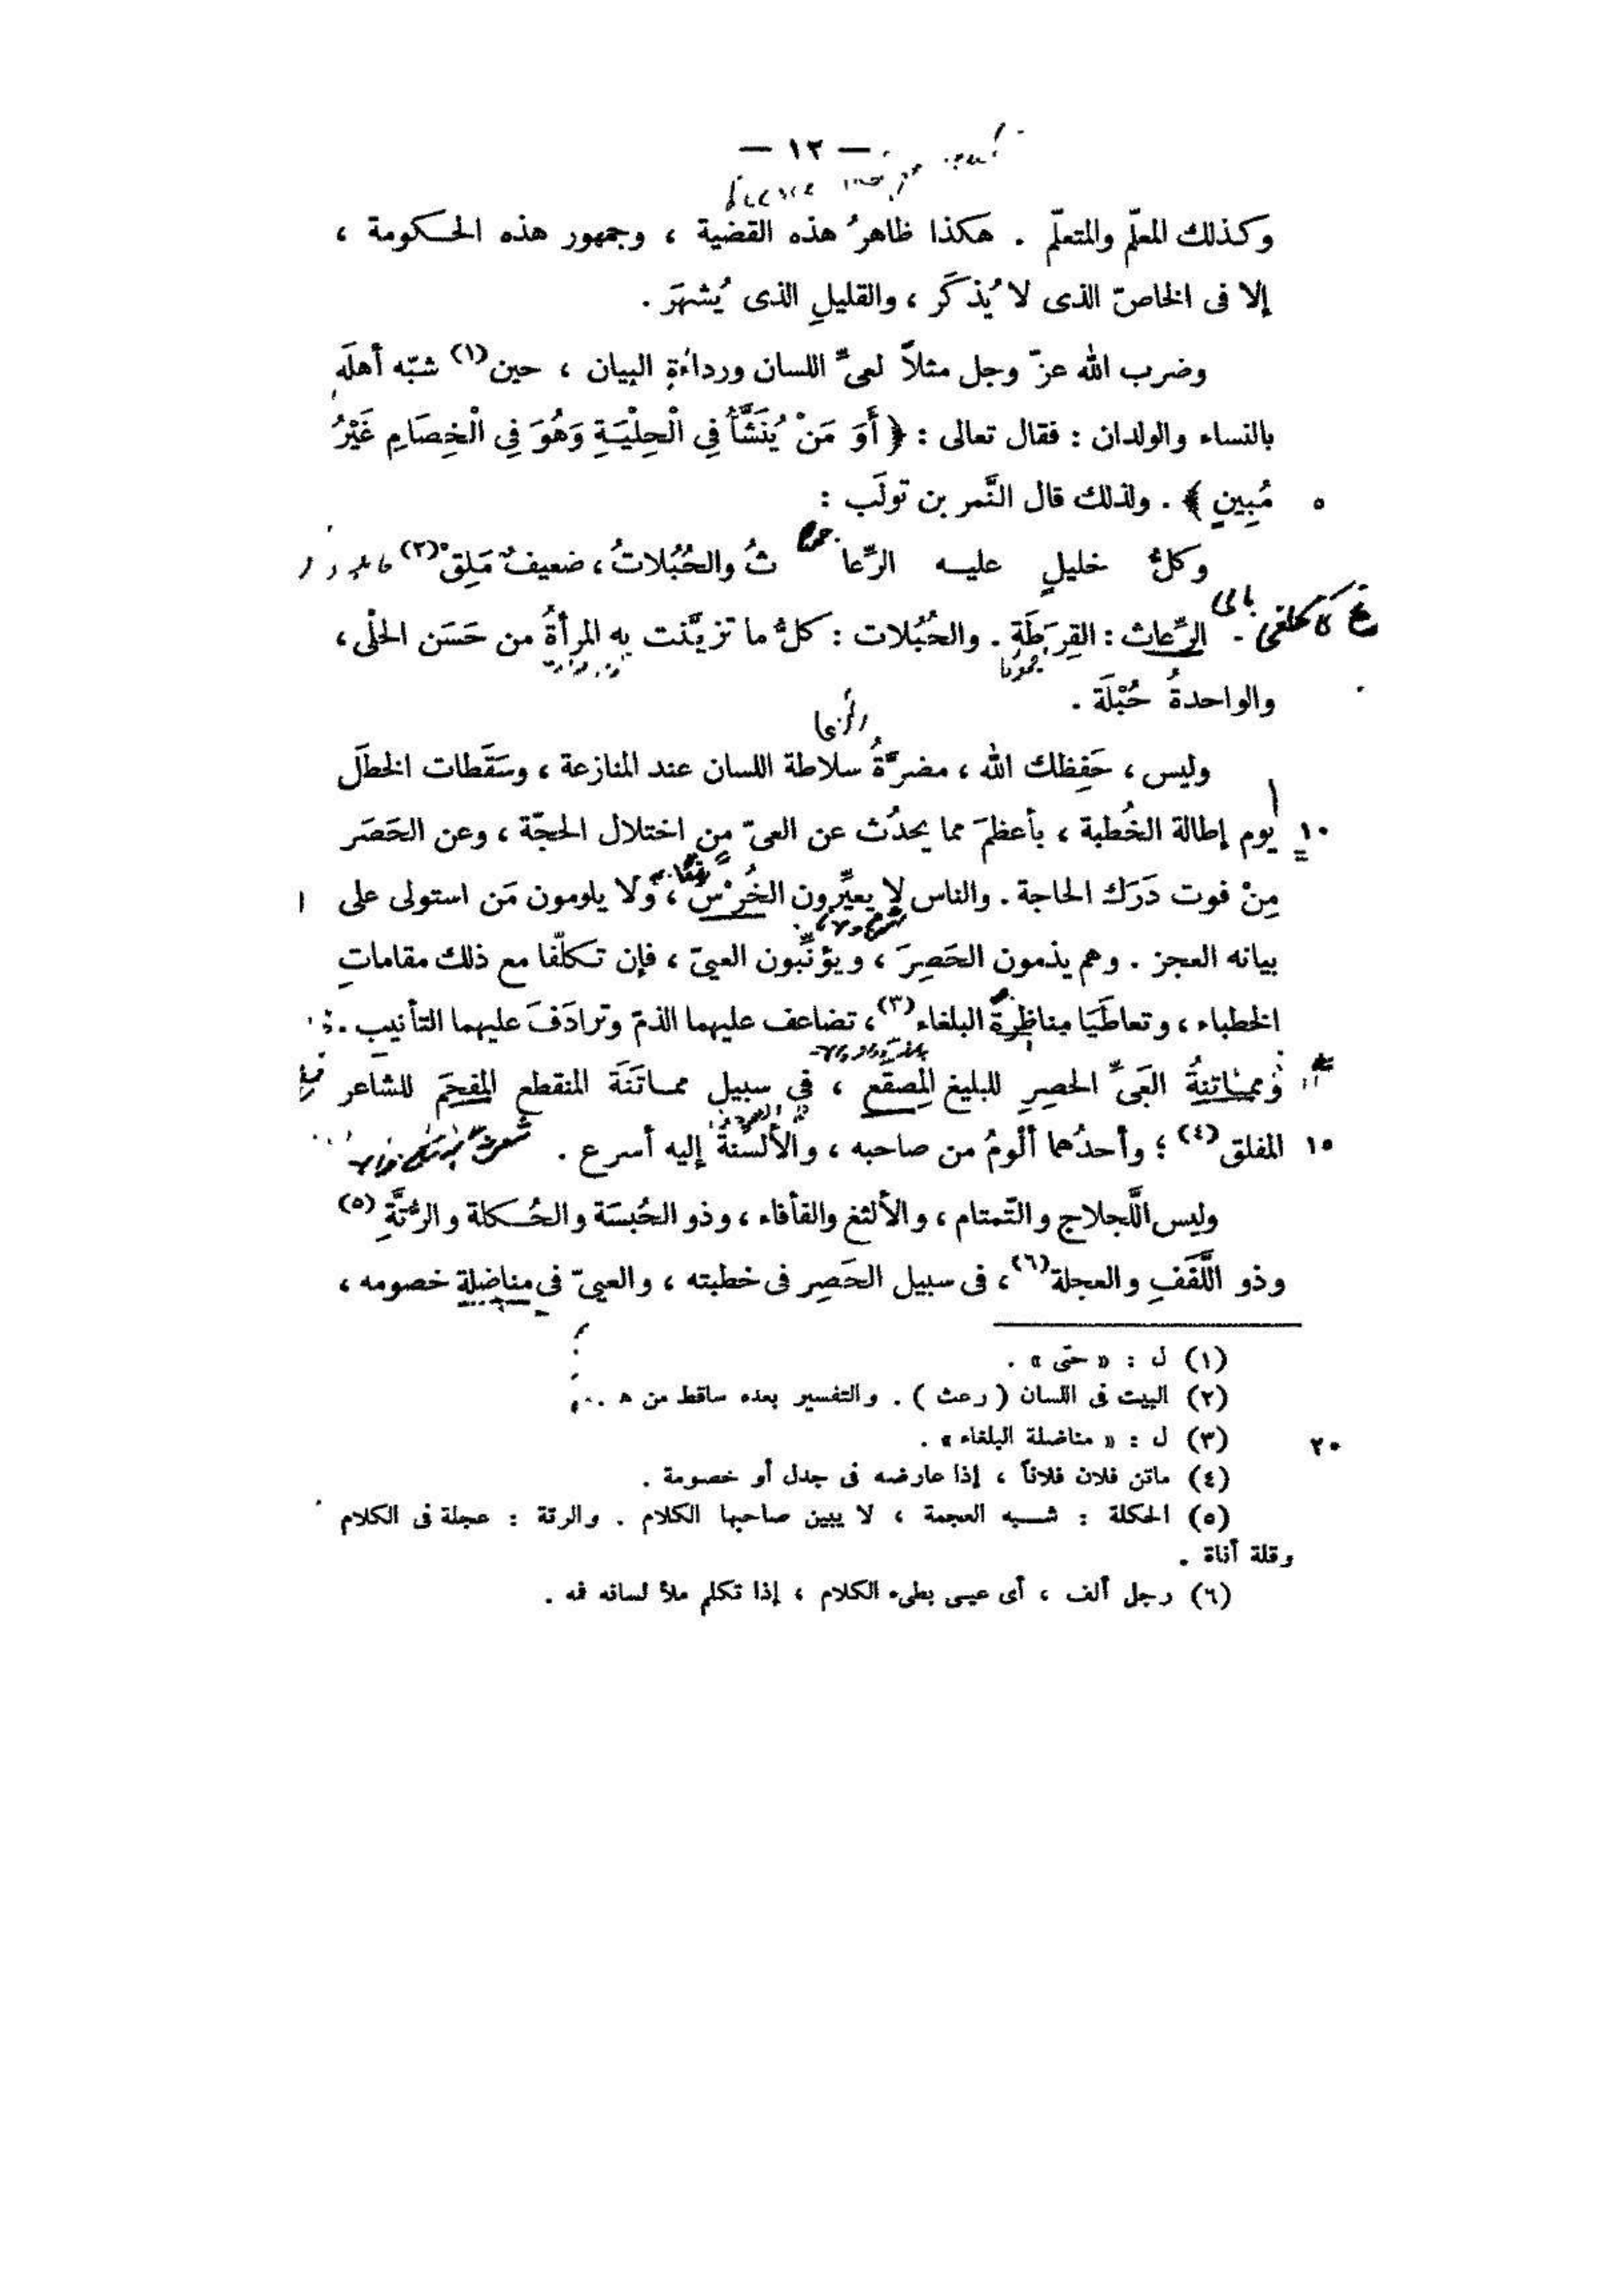 — ١٢ —
وكذلك المعلّم والمتعلّم . هكذا ظاهرُ هذه القضية ، وجمهور هذه الحكومة ،
إلا فى الخاصّ الذى لا يُذكَر ، والقليلِ الذى يُشهَر .
وضرب الله عزّ وجل مثلاً لعىِّ اللسان ورداءةِ البيان ، حين (١) شبّه أهلَه
بالنساء والولدان : فقال تعالى : ﴿ أَوَ مَنْ يُنَشَّأُ فِي الْحِلْيَةِ وَهُوَ فِي الْخِصَامِ غَيْرُ
٥ مُبِينٍ ﴾ . ولذلك قال النَّمر بن تولَب :
وكلُّ خليلٍ عليه الرِّعا ثُ والحُبُلاتُ ، ضعيفٌ مَلِقْ (٢)
الرِّعاث : القِرَطَة . والحُبُلات : كلُّ ما تزيَّنت به المرأةُ من حَسَن الحلْى ،
والواحدةُ حُبْلَة .
وليس ، حَفِظك الله ، مضرَّةُ سلاطة اللسان عند المنازعة ، وسَقَطات الخطَل
١٠ يوم إطالة الخُطبة ، بأعظمَ مما يحدُث عن العىّ من اختلال الحجّة ، وعن الحَصَر
مِنْ فوت دَرَك الحاجة . والناس لا يعيِّرون الخُرْس ، ولا يلومون مَن استولى على
بيانه العجز . وهم يذمون الحَصِرَ ، ويؤنِّبون العيىّ ، فإن تكلّفا مع ذلك مقاماتِ
الخطباء ، وتعاطَيَا مناظرة البلغاء (٣) ، تضاعف عليهما الذمّ وترادَفَ عليهما التأنيب .
ومماتنةُ العَىِّ الحصِرِ للبليغ المِصقَع ، فى سبيل مماتَنَة المنقطع المفحَم للشاعر
١٥ المفلق (٤) ؛ وأحدُهما ألْومُ من صاحبه ، والألسنةُ إليه أسرع .
وليس اللَّجلاج والتّمتام ، والألثغ والفأفاء ، وذو الحُبسَة والحُكلة والرُّتَّةِ (٥)
وذو اللَّفَفِ والعجلة (٦) ، فى سبيل الحَصِر فى خطبته ، والعيىّ فى مناضلة خصومه ،
(١) ل : « حتى » .
(٢) البيت فى اللسان ( رعث ) . والتفسير بعده ساقط من ه .
٢٠ (٣) ل : « مناضلة البلغاء » .
(٤) ماتن فلان فلاناً ، إذا عارضه فى جدل أو خصومة .
(٥) الحكلة : شبه العجمة ، لا يبين صاحبها الكلام . والرتة : عجلة فى الكلام
وقلة أناة .
(٦) رجل ألف ، أى عيى بطىء الكلام ، إذا تكلم ملأ لسانه فمه .